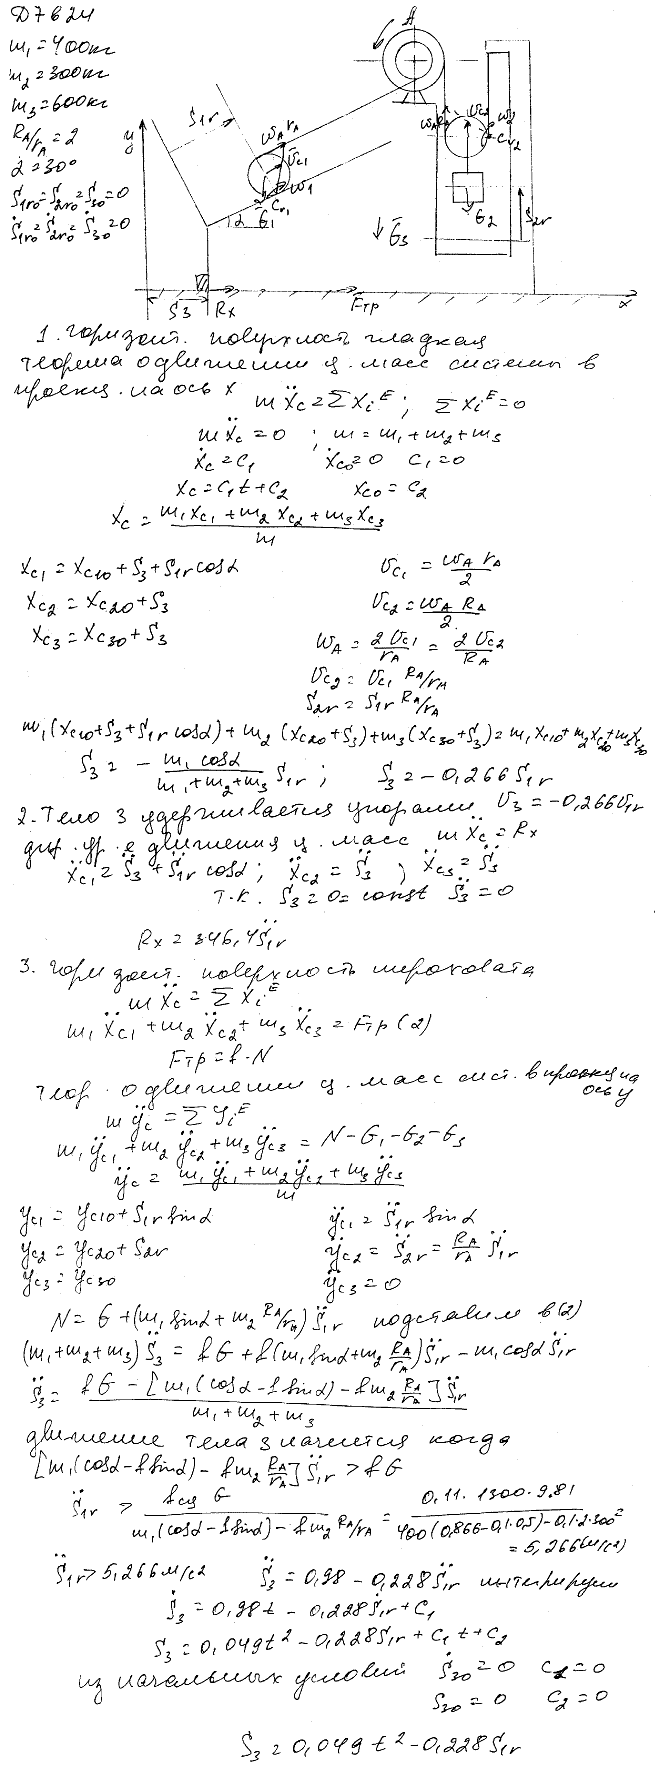 D7 B 24
m₁ = 400кг
m₂ = 300кг
m₃ = 600кг
R_A/r_A = 2
α = 30°
S₁r₀ = S₂r₀ = S₃₀ = 0
Ṡ₁r₀ = Ṡ₂r₀ = Ṡ₃₀ = 0
A
y
S₁r
ω_A r_A
V̄c₁
ω₁
Cv₁
α
Ḡ₁
ω_A R_A
Vc₂
ω₂
Cv₂
Ḡ₂
S₂r
Ḡ₃
S₃
Rx
Fтр
x
1. Горизонт. поверхность гладкая
теорема о движении ц. масс системы в
проекц. на ось x mẍc = ΣXiᴱ; ΣXiᴱ = 0
mẍc = 0 ; m = m₁ + m₂ + m₃
ẋc = C₁ ẋc₀ = 0 C₁ = 0
xc = C₁t + C₂ xc₀ = C₂
xc = (m₁xc₁ + m₂xc₂ + m₃xc₃)/m
xc₁ = xc₁₀ + S₃ + S₁r cosα Vc₁ = ω_A r_A/2
xc₂ = xc₂₀ + S₃ Vc₂ = ω_A R_A/2
xc₃ = xc₃₀ + S₃ ω_A = 2Vc₁/r_A = 2Vc₂/R_A
Vc₂ = Vc₁ R_A/r_A
S₂r = S₁r R_A/r_A
m₁(xc₁₀ + S₃ + S₁r cosα) + m₂(xc₂₀ + S₃) + m₃(xc₃₀ + S₃) = m₁xc₁₀ + m₂xc₂₀ + m₃xc₃₀
S₃ = - (m₁ cosα)/(m₁ + m₂ + m₃) S₁r ; S₃ = -0,266 S₁r
2. Тело 3 удерживается упорами V₃ = -0,266V₁r
диф. ур. е движения ц. масс mẍc = Rx
ẍc₁ = S̈₃ + S̈₁r cosα; ẍc₂ = S̈₃ ; ẍc₃ = S̈₃
т.к. S₃ = 0 = const S̈₃ = 0
Rx = 346,4 S̈₁r
3. Горизонт. поверхность шероховата
mẍc = ΣXiᴱ
m₁ẍc₁ + m₂ẍc₂ + m₃ẍc₃ = Fтр (2)
Fтр = f · N
теор. о движении ц. масс сист. в проекц на ось y
mÿc = ΣYiᴱ
m₁ÿc₁ + m₂ÿc₂ + m₃ÿc₃ = N - G₁ - G₂ - G₃
ÿc = (m₁ÿc₁ + m₂ÿc₂ + m₃ÿc₃)/m
yc₁ = yc₁₀ + S₁r sinα ÿc₁ = S̈₁r sinα
yc₂ = yc₂₀ + S₂r ÿc₂ = S̈₂r = R_A/r_A S̈₁r
yc₃ = yc₃₀ ÿc₃ = 0
N = G + (m₁ sinα + m₂ R_A/r_A) S̈₁r подставим в (2)
(m₁ + m₂ + m₃) S̈₃ = fG + f(m₁ sinα + m₂ R_A/r_A) S̈₁r - m₁ cosα S̈₁r
S̈₃ = (fG - [m₁(cosα - f sinα) - fm₂ R_A/r_A] S̈₁r)/(m₁ + m₂ + m₃)
движение тела 3 начнется когда
[m₁(cosα - f sinα) - fm₂ R_A/r_A] S̈₁r > fG
S̈₁r > (fсц G)/(m₁(cosα - f sinα) - fm₂ R_A/r_A) = (0,11 · 1300 · 9,81)/(400(0,866 - 0,1·0,5) - 0,1·2·300) =
= 5,266 (м/с²)
S̈₁r > 5,266 м/с² S̈₃ = 0,98 - 0,228 S̈₁r интегрируем
Ṡ₃ = 0,98t - 0,228 Ṡ₁r + C₁
S₃ = 0,049t² - 0,228 S₁r + C₁t + C₂
из начальных условий Ṡ₃₀ = 0 C₁ = 0
S₃₀ = 0 C₂ = 0
S₃ = 0,049t² - 0,228 S₁r